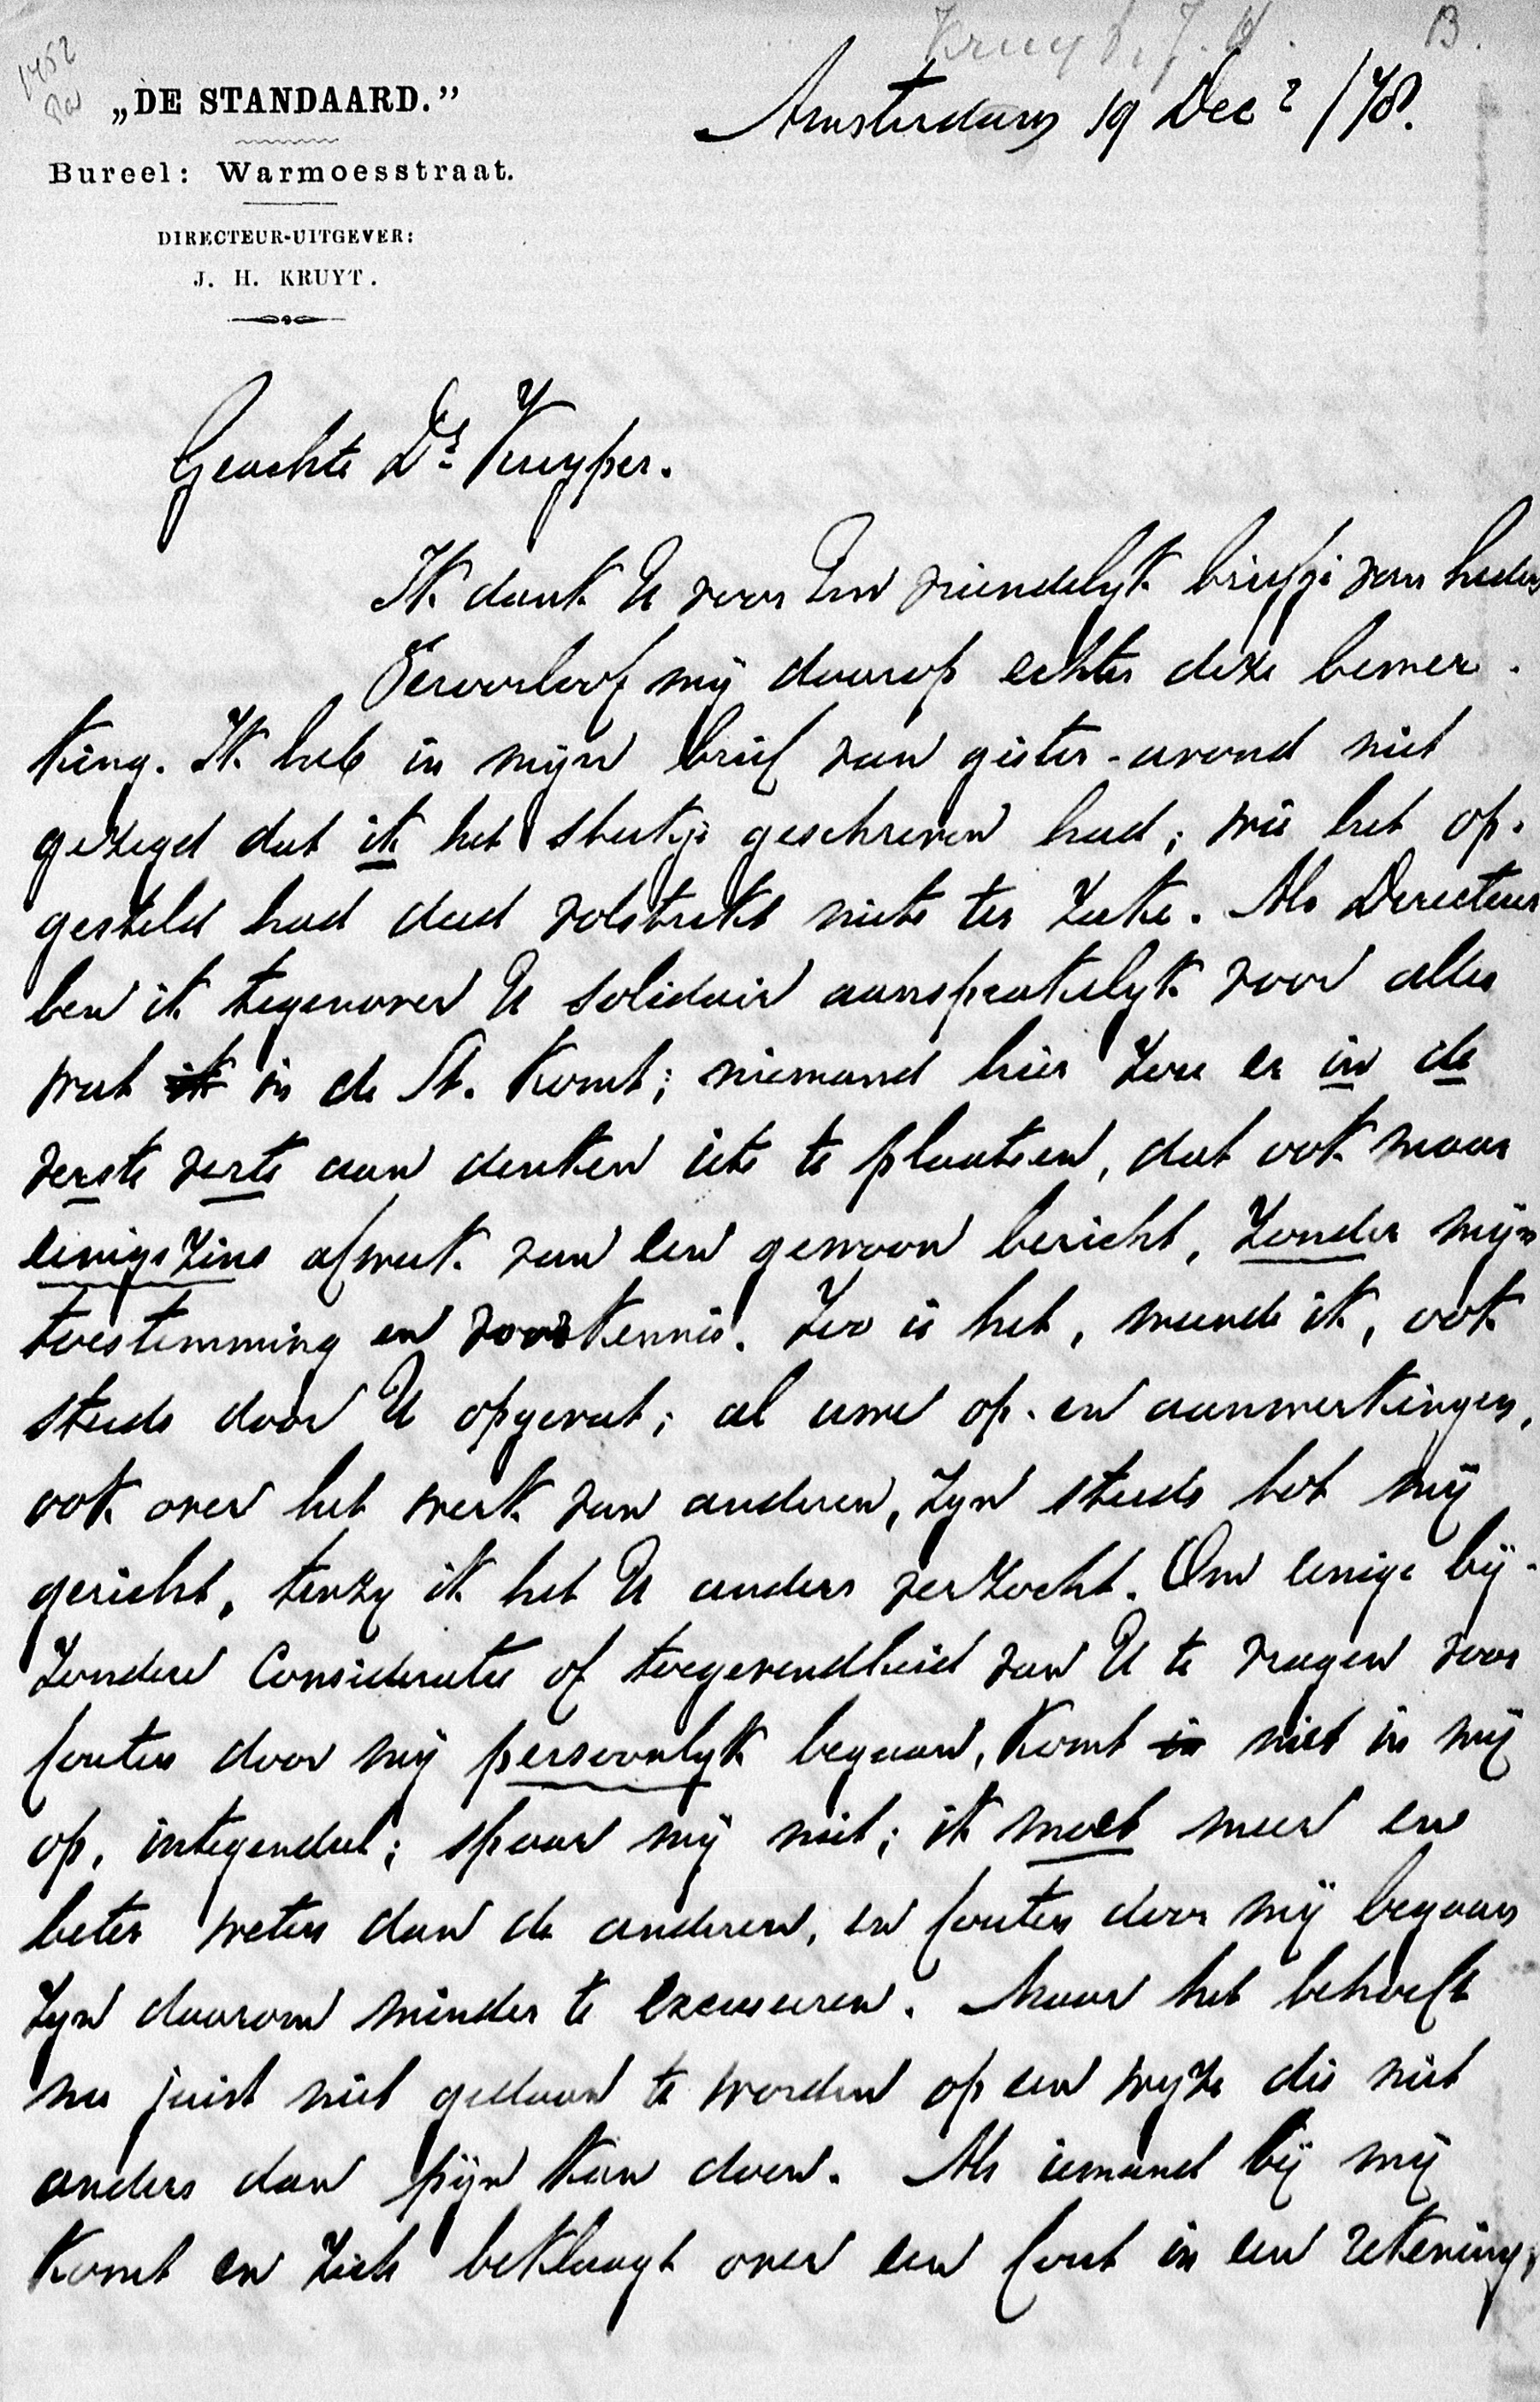 Kruyt, J. H.
B.
1452
„DE STANDAARD.”
Amsterdam 19 Dec^r /78.
Bureel: Warmoesstraat.
DIRECTEUR-UITGEVER:
J. H. KRUYT.
Geachte Dr. Kuyper.
Ik dank U voor Uw vriendelyk briefje van heden
Veroorloof mij daarop echter deze bemer-
king. Ik heb in mijn brief van gister-avond niet
gezegd dat ik het stukje geschreven had; wie het op-
gesteld had deed volstrekt niets ter zake. Als Directeur
ben ik tegenover U solidair aansprakelyk voor alles
wat ik in de St. komt; niemand hier zou er in de
verste verte aan denken iets te plaatsen, dat ook maar
eenigszins afweek van een gewoon bericht, zonder mijn
toestemming en voorkennis. Zoo is het, meende ik, ook
steeds door U opgevat; al uwe op- en aanmerkingen,
ook over het werk van anderen, zyn steeds tot mij
gericht, tenzy ik het U anders verzocht. Om eenige bij-
zondere Consideratie of toegevendheid van U te vragen voor
fouten door mij persoonlyk begaan, komt in niet in mij
op, integendeel; spaar mij niet; ik moet meer en
beter weten dan de anderen, en fouten door mij begaan
zyn daarom minder te excuseeren. Maar het behoeft
nu juist niet gedaan te worden op een wyze die niet
anders dan pijn kan doen. Als iemand bij mij
komt en zich beklaagt over een fout in een rekening,